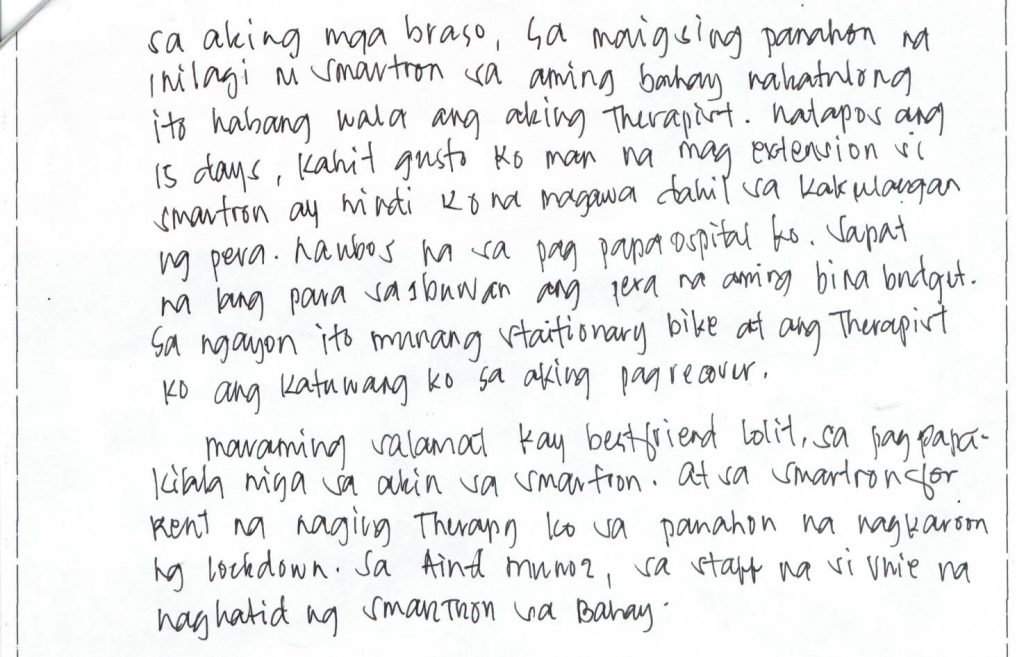 sa aking mga braso, sa maigsing panahon na
inilagi ni smartron sa aming bahay nakatulong
ito habang wala ang aking Therapist. natapos ang
15 days, kahit gusto ko man na mag extension si
smartron ay hindi ko na magawa dahil sa kakulangan
ng pera. naubos na sa pag papaospital ko. sapat
na lang para sa isbuwan ang pera na aming bina budgut.
Sa ngayon ito munang staitionary bike at ang Therapist
ko ang katuwang ko sa aking pag recover.
maraming salamat kay bestfriend lolit, sa pag papa-
kilala niya sa akin sa smartron. at sa smartron for
Rent na naging Therapy ko sa panahon na nagkaroon
ng lockdown. Sa munoz, sa staff na si na
naghatid ng smartron sa Bahay.